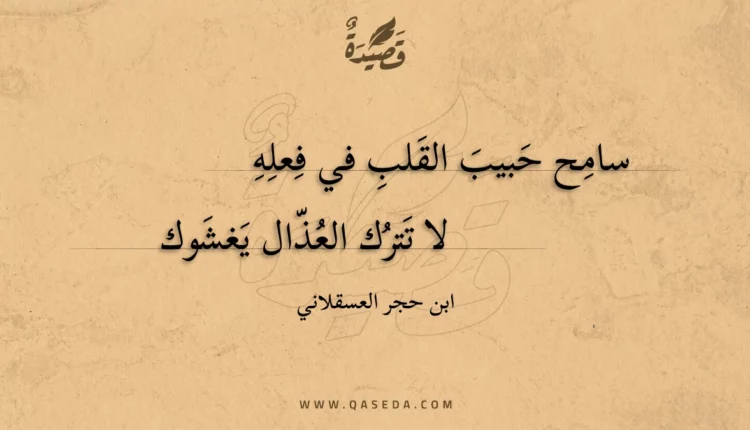 قَصِيْدَةٌ
سامِح حَبيبَ القَلبِ في فِعلِهِ
لا تَترُك العُذّال يَغشَوك
ابن حجر العسقلاني
WWW.QASEDA.COM